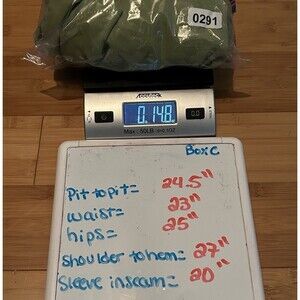 0291
Accuteck
0.148
Max: 50LB d=0.1OZ
Box C
Pit to pit= 24.5"
waist= 23"
hips= 25"
shoulder to hem= 27"
sleeve inseam= 20"